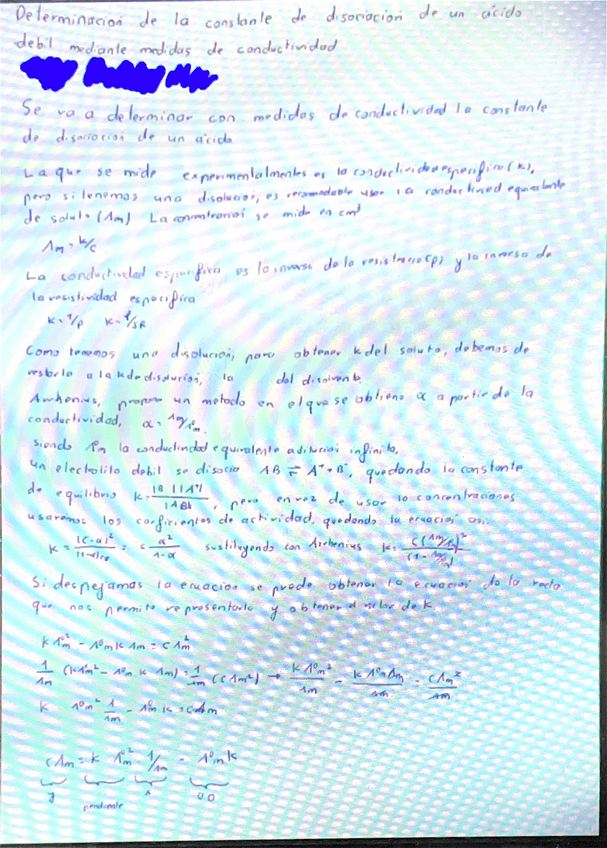 Determinacion de la constante de disociacion de un acido
debil mediante medidas de conductividad
Se va a determinar con medidas de conductividad la constante
de disociacion de un ácido
La que se mide experimentalmentes es la conductividad especifica (k),
pero si tenemos una disolucion, es recomendable usar la conductividad equivalente
de soluto (Λm) La concentracion se mide en cm³
Λm = k/c
La conductividad especifica es lo inverso de la resistencia (ρ) y la inversa de
la resistividad especifica
k = 1/ρ
Como tenemos una disolucion, para obtener k del soluto, debemos de
restarle a la k de disolucion, la del disolvente.
Arrhenius, propone un metodo en el que se obtiene α a partir de la
conductividad, α = Λm/Λ°m.
siendo Λ°m la conductividad equivalente a dilucion infinita,
un electrolito debil se disocia AB ⇌ A⁺ + B⁻, quedando la constante
de equilibrio , pero en vez de usar la concentraciones
usaremos los coeficientes de actividad, quedando la ecuacion asi.
= c α²/1-α sustituyendo con Arrhenius
Si despejamos la ecuacion se puede obtener la ecuacion de la recta
que nos permite representarlo y obtener el valor de k
k Λ°m² - Λ°m k Λm = c Λm²
1/Λm (k Λ°m² - Λ°m k Λm) = 1/Λm (c Λm²) → k Λ°m²/Λm - k Λ°m Λm/Λm = c Λm²/Λm
k Λ°m² 1/Λm - Λ°m k = c Λm
c Λm = k Λ°m² 1/Λm - Λ°m k
y pendiente x O.O